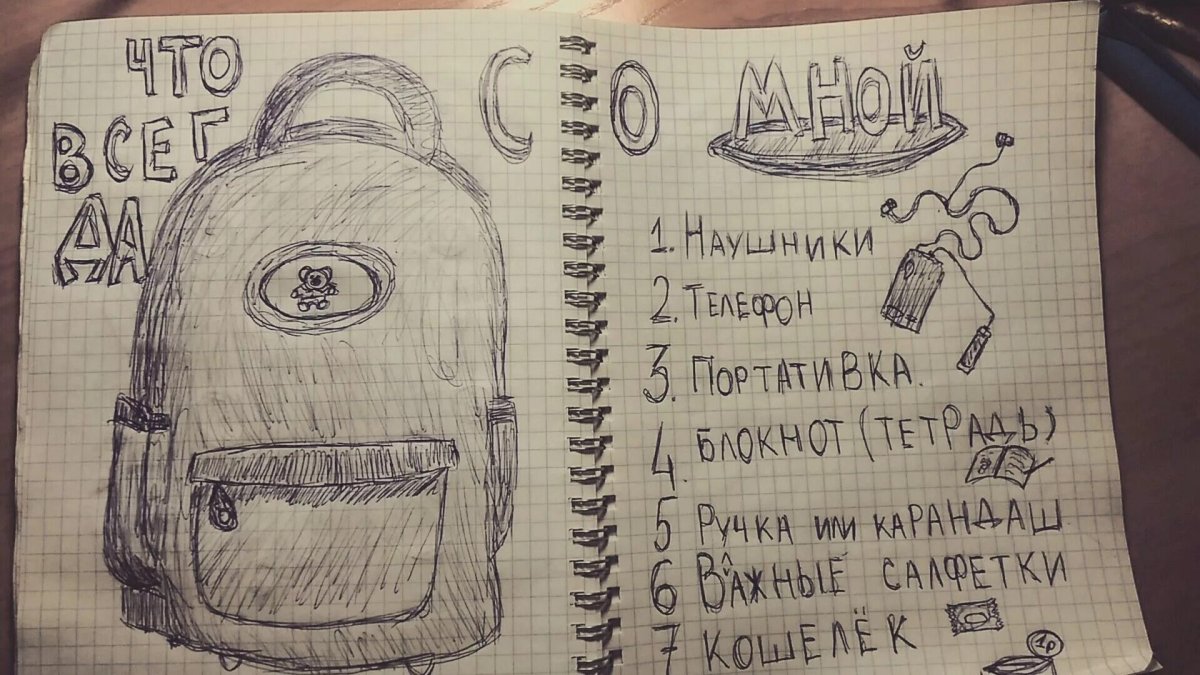 ЧТО
ВСЕГ
ДА
СО МНОЙ
1. НАУШНИКИ
2. ТЕЛЕФОН
3. ПОРТАТИВКА.
4. БЛОКНОТ (ТЕТРАДЬ)
5 РУЧКА ИЛИ КАРАНДАШ
6 ВЛАЖНЫЕ САЛФЕТКИ
7 КОШЕЛЁК
1р